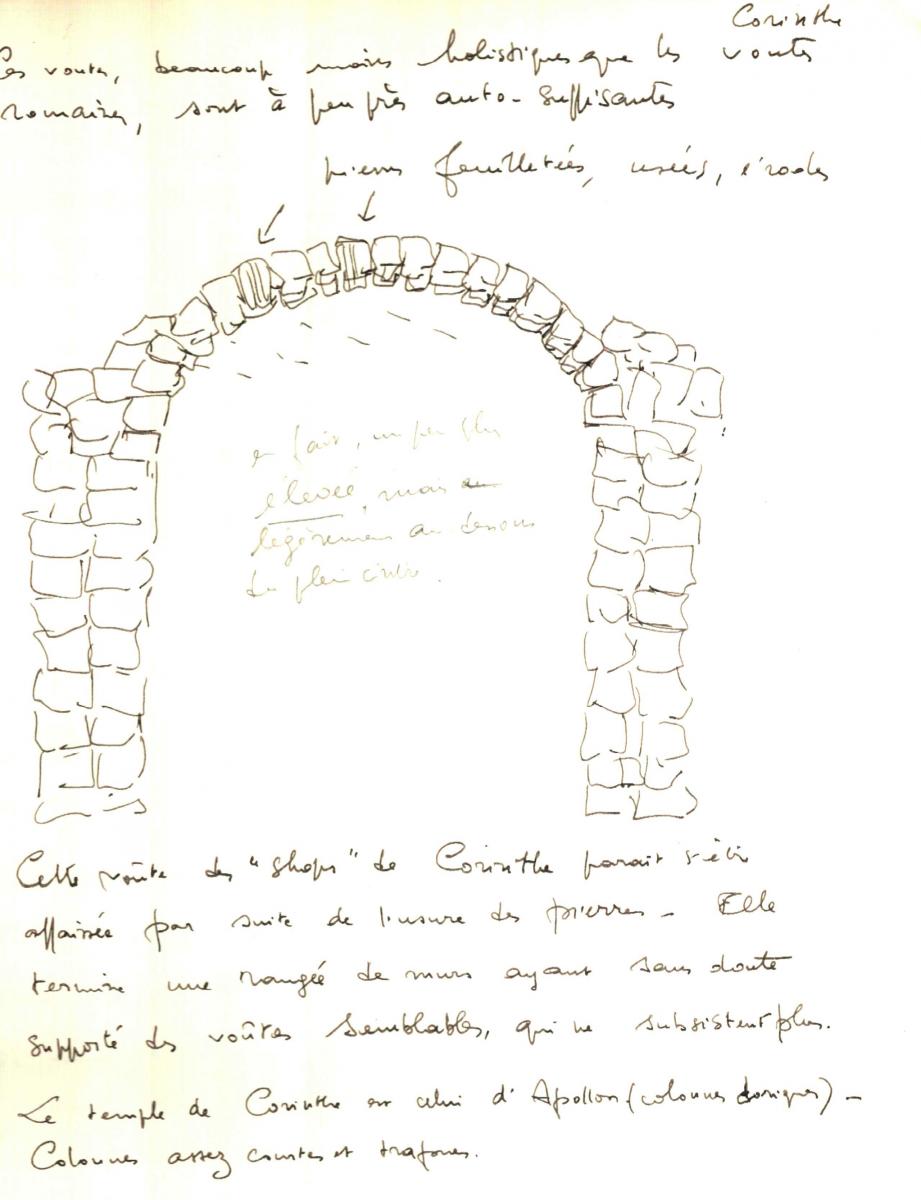 Corinthe
Ces voutes, beaucoup moins holistiques que les voutes
romaines, sont à peu près auto-suffisantes
pierres feuilletées, usées, érodées
en fait, un peu plus
élevée, mais
légèrement au dessous
du plein cintre.
Cette voûte des "shops" de Corinthe parait s'être
affaissée par suite de l'usure des pierres - Elle
termine une rangée de murs ayant sans doute
supporté des voûtes semblables, qui ne subsistent plus.
Le temple de Corinthe est celui d'Apollon (colonnes doriques) -
Colonnes assez courtes et trapues.